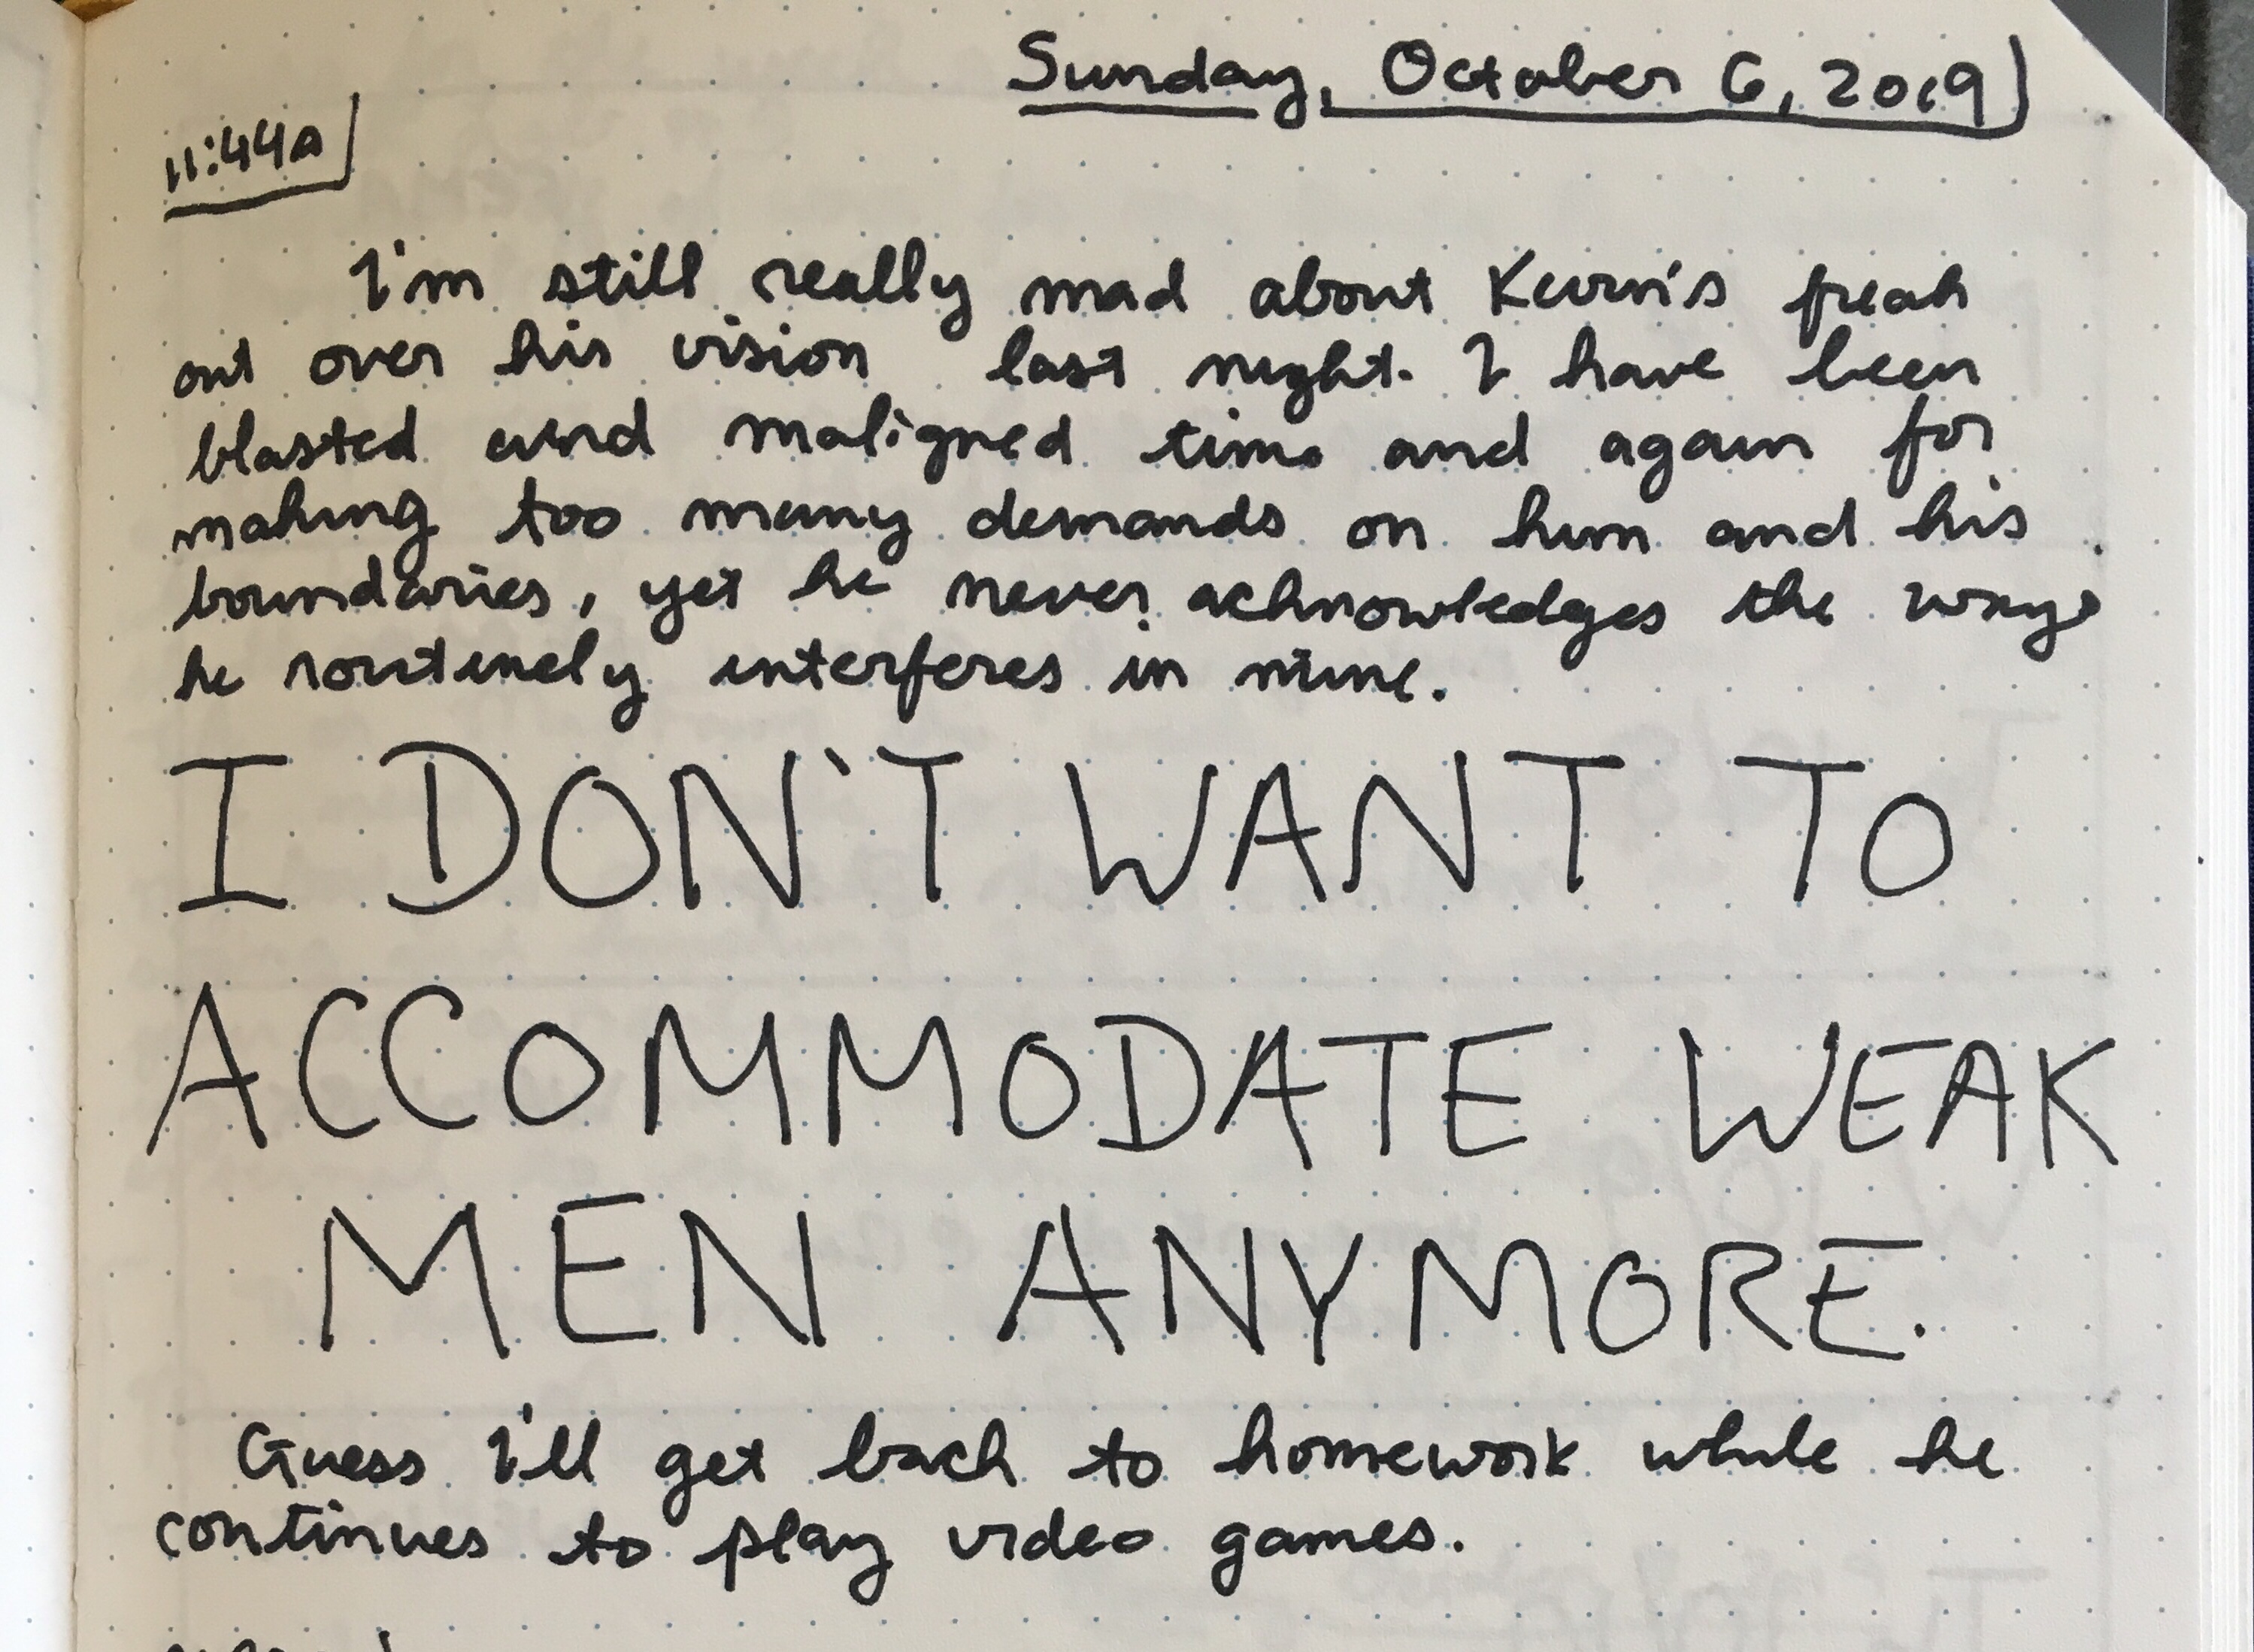 Sunday, October 6, 2019
11:44A
I'm still really mad about Kevin's freak
out over his vision last night. I have been
blasted and maligned time and again for
making too many demands on him and his
boundaries, yet he never acknowledges the ways
he routinely interferes in mine.
I DON'T WANT TO
ACCOMMODATE WEAK
MEN ANYMORE.
Guess I'll get back to homework while he
continues to play video games.